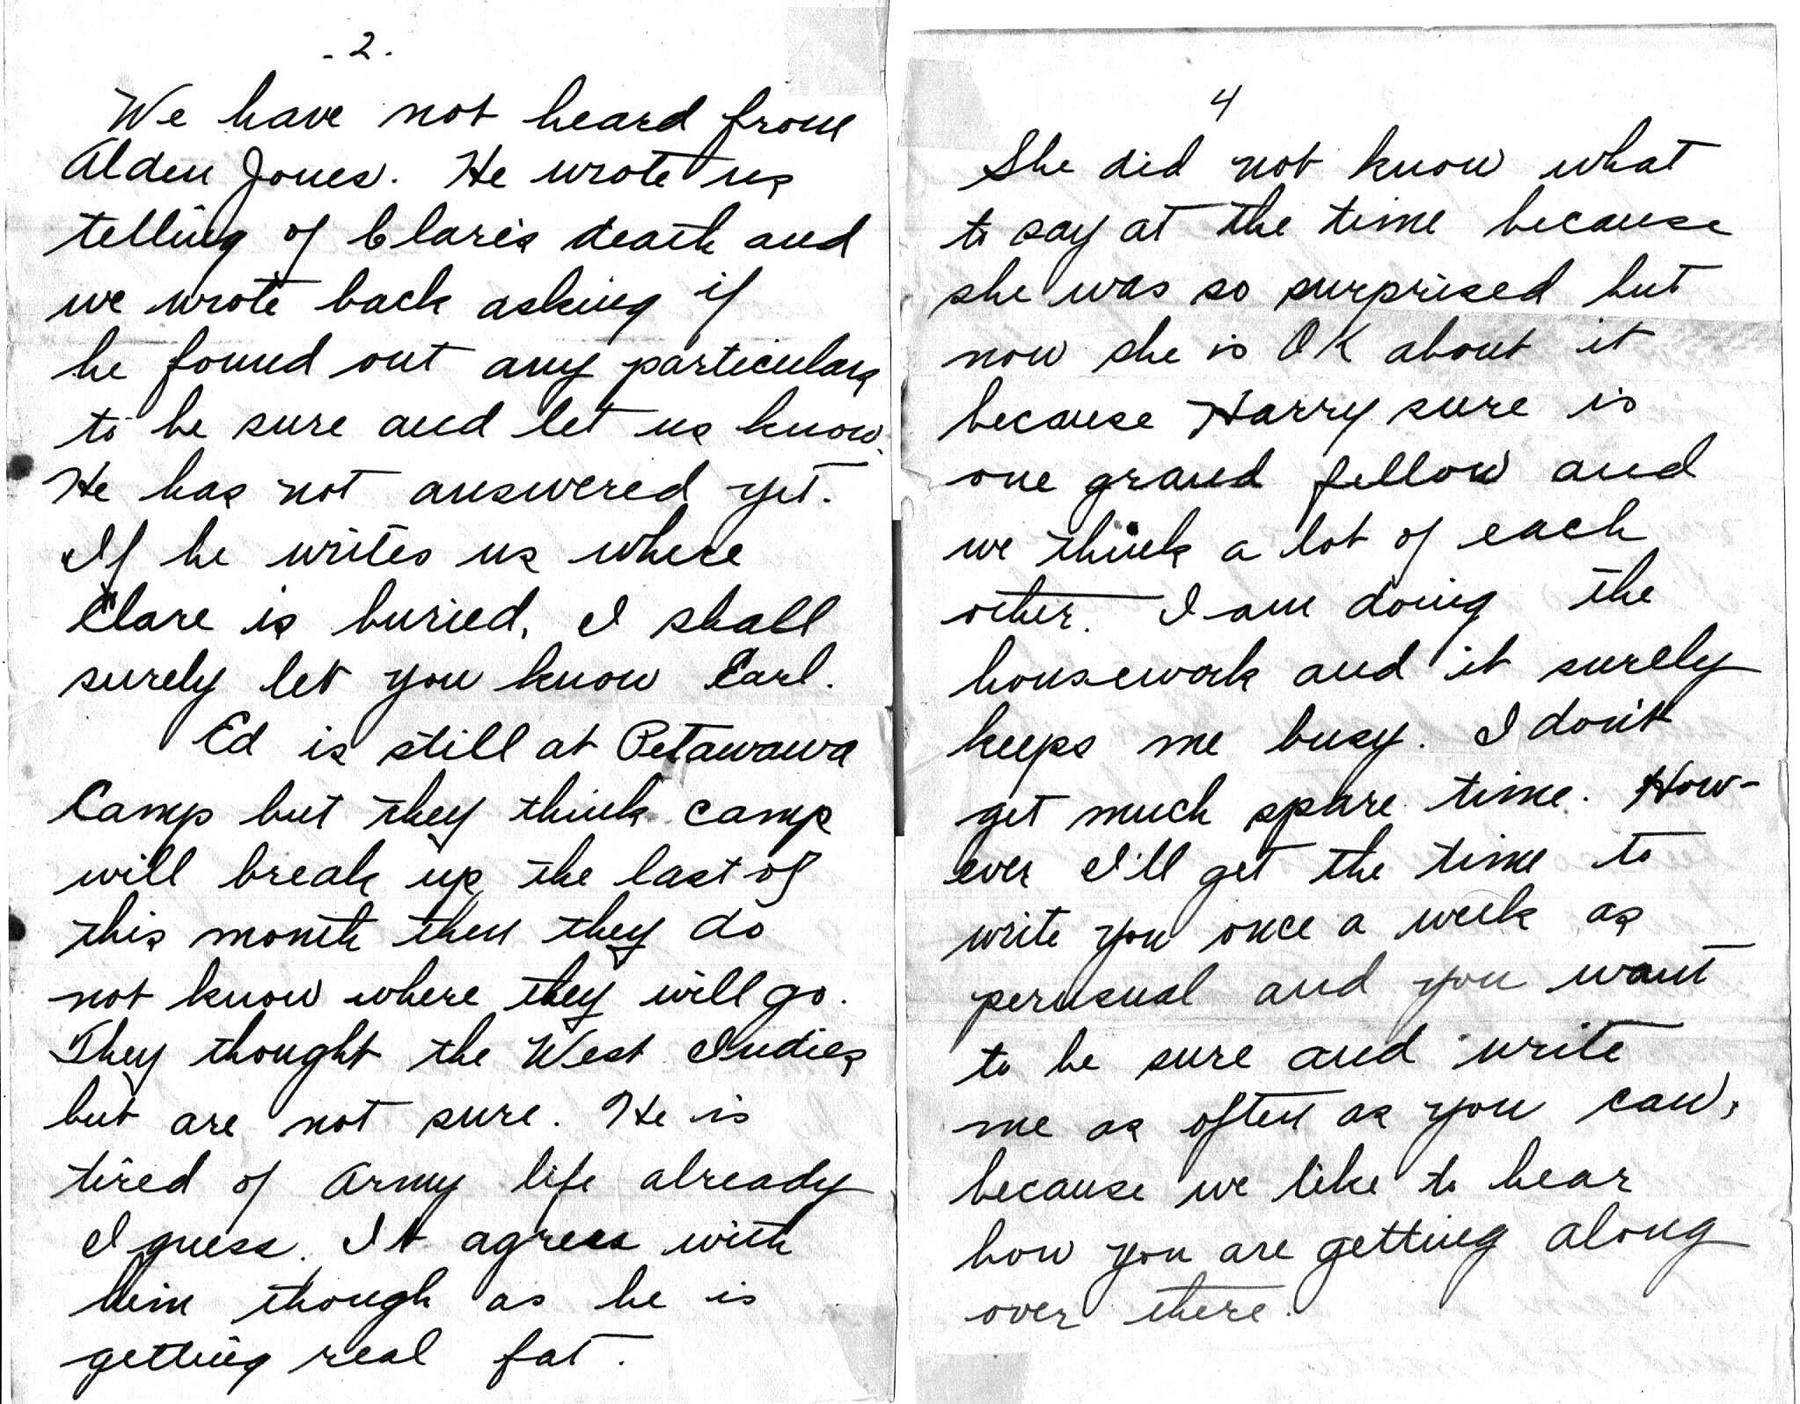 - 2 -
We have not heard from
Alden Jones. He wrote us
telling of Clare's death and
we wrote back asking if
he found out any particulars
to be sure and let us know.
He has not answered yet.
If he writes us where
Clare is buried, I shall
surely let you know Earl.
Ed is still at Petawawa
Camp but they think camp
will break up the last of
this month then they do
not know where they will go.
They thought the West Indies
but are not sure. He is
tired of army life already
I guess. It agrees with
him though as he is
getting real fat.
4
She did not know what
to say at the time because
she was so surprised but
now she is OK about it
because Harry sure is
one grand fellow and
we think a lot of each
other. I am doing the
housework and it surely
keeps me busy. I don't
get much spare time. How-
ever I'll get the time to
write you once a week as
perusual and you want
to be sure and write
me as often as you can,
because we like to hear
how you are getting along
over there.